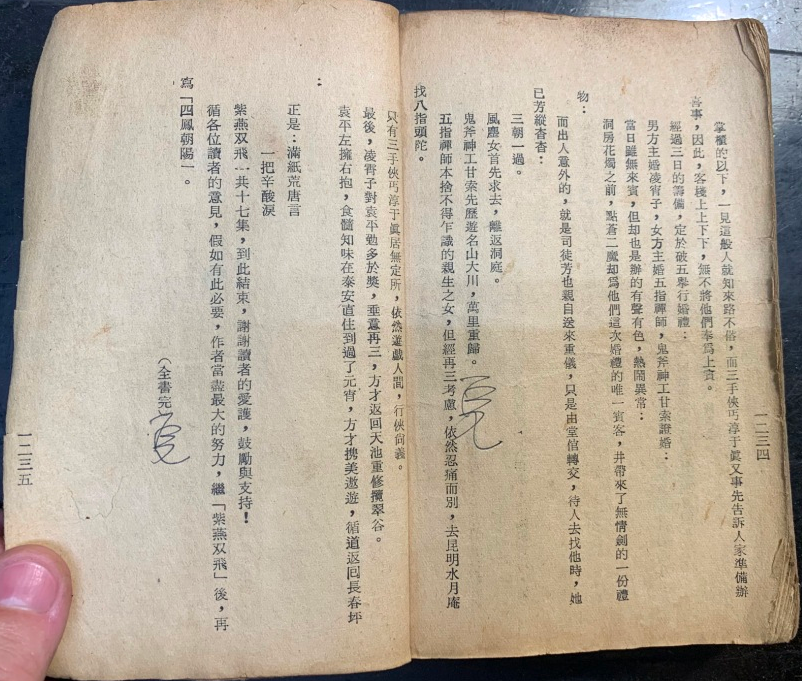 一二三四
掌櫃的以下，一見這般人就知來路不俗，而三手俠丐淳于眞又事先告訴人家準備辦
喜事，因此，客棧上上下下，無不將他們奉爲上賓。
經過三日的籌備，定於破五舉行婚禮：
男方主婚凌霄子，女方主婚五指禪師，鬼斧神工甘索證婚：
當日雖無來賓，但却也是辦的有聲有色，熱鬧異常：
洞房花燭之前，點蒼二魔却爲他們這次婚禮的唯一賓客，并帶來了無情劍的一份禮
物：
而出人意外的，就是司徒芳也親自送來重儀，只是由堂倌轉交，待人去找他時，她
已芳縱杳杳：
三朝一過。
風塵女首先求去，離返洞庭。
鬼斧神工甘索先歷遊名山大川，萬里重歸。
五指禪師本捨不得乍識的親生之女，但經再三考慮，依然忍痛而別，去昆明水月庵
找八指頭陀。
只有三手俠丐淳于眞居無定所，依然遊戲人間，行俠尙義。
最後，凌霄子對袁平勁多於獎，垂意再三，方才返回天池重修攬翠谷。
袁平左擁右抱，食髓知味在泰安直住到過了元宵，方才携美遨遊，循道返囘長春坪
：
正是：滿紙荒唐言
一把辛酸淚
紫燕双飛一共十七集，到此結束，謝謝讀者的愛護，鼓勵與支持！
循各位讀者的意見，假如有此必要，作者當盡最大的努力，繼「紫燕双飛」後，再
寫「四鳳朝陽」。
（全書完）
一二三五